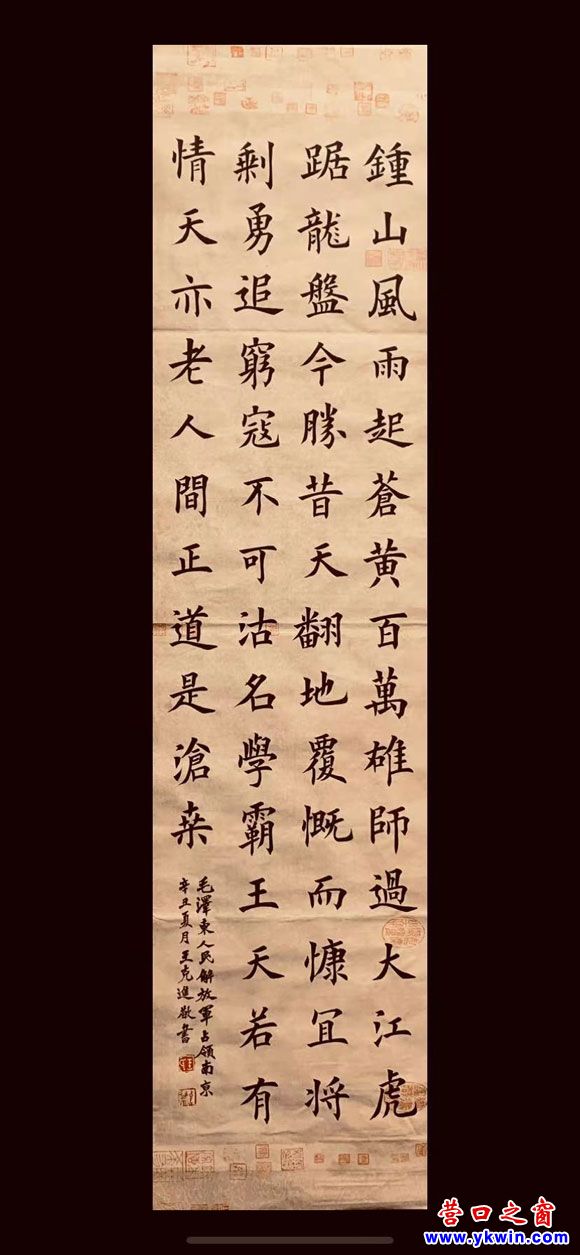 鍾山風雨起蒼黄百萬雄師過大江虎
踞龍盤今勝昔天翻地覆慨而慷冝将
剩勇追窮寇不可沽名學霸王天若有
情天亦老人間正道是滄桒
毛澤東人民解放軍占領南京
辛丑夏月王克進敬書
营口之窗
www.ykwin.com